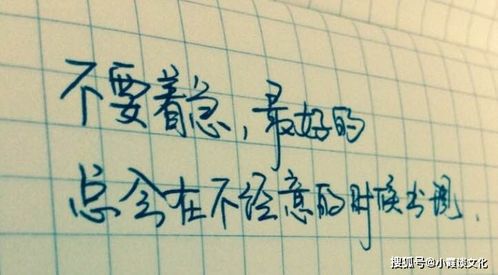 不要着急,最好的
总会在不经意的时候出现.
搜狐号@小霞谈文化